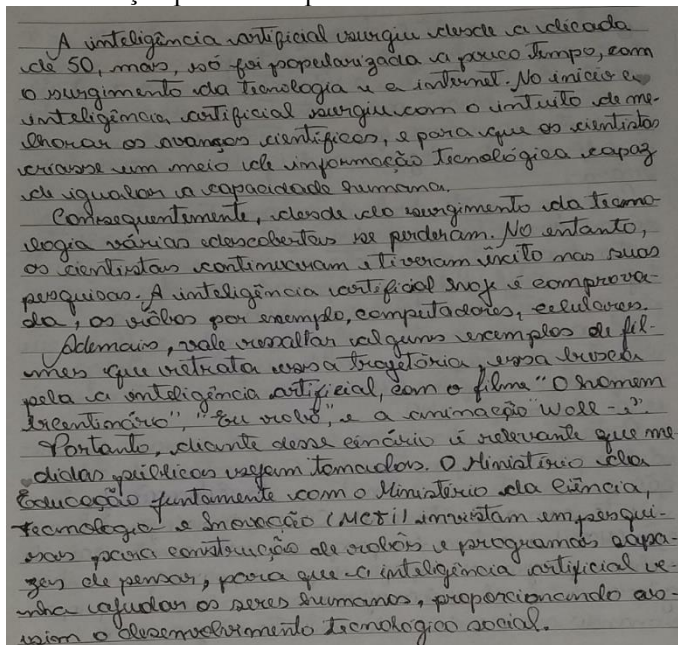 A inteligência artificial surgiu desde a dicada
de 50, mais, só foi popularizada a pouco tempo, com
o surgimento da tecnologia e a internet. No inicio a
inteligência artificial surgiu com o intuito de me-
lhorar os avanços cientificos, e para que os cientistas
criasse um meio de informação tecnológica capaz
de igualar a capacidade humana.
Consequentemente, desde do surgimento da tecno
logia várias descobertas se perderam. No entanto,
os cientistas continuaram e tiveram êxito nas suas
pesquisas. A inteligência artificial hoje é comprova-
da, os rôbos por exemplo, computadores, celulares.
Ademais, vale ressaltar alguns exemplos de fil-
mes que retrata essa trajetória, essa busca
pela a inteligência artificial, com o filme "O homem
bicentinário", "Eu robô", e a animação "Woll-e".
Portanto, diante desse cenário é relevante que me
didas públicas sejam tomadas. O Ministério da
Educação juntamente com o Ministério da Ciência,
tecnologia e Inovação (MCTI) invistam em pesqui-
sas para construção de robôs e programas capa-
zes de pensar, para que a inteligência artificial ve-
nha ajudar os seres humanos, proporcionando as-
sim o desenvolvimento tecnologico social.